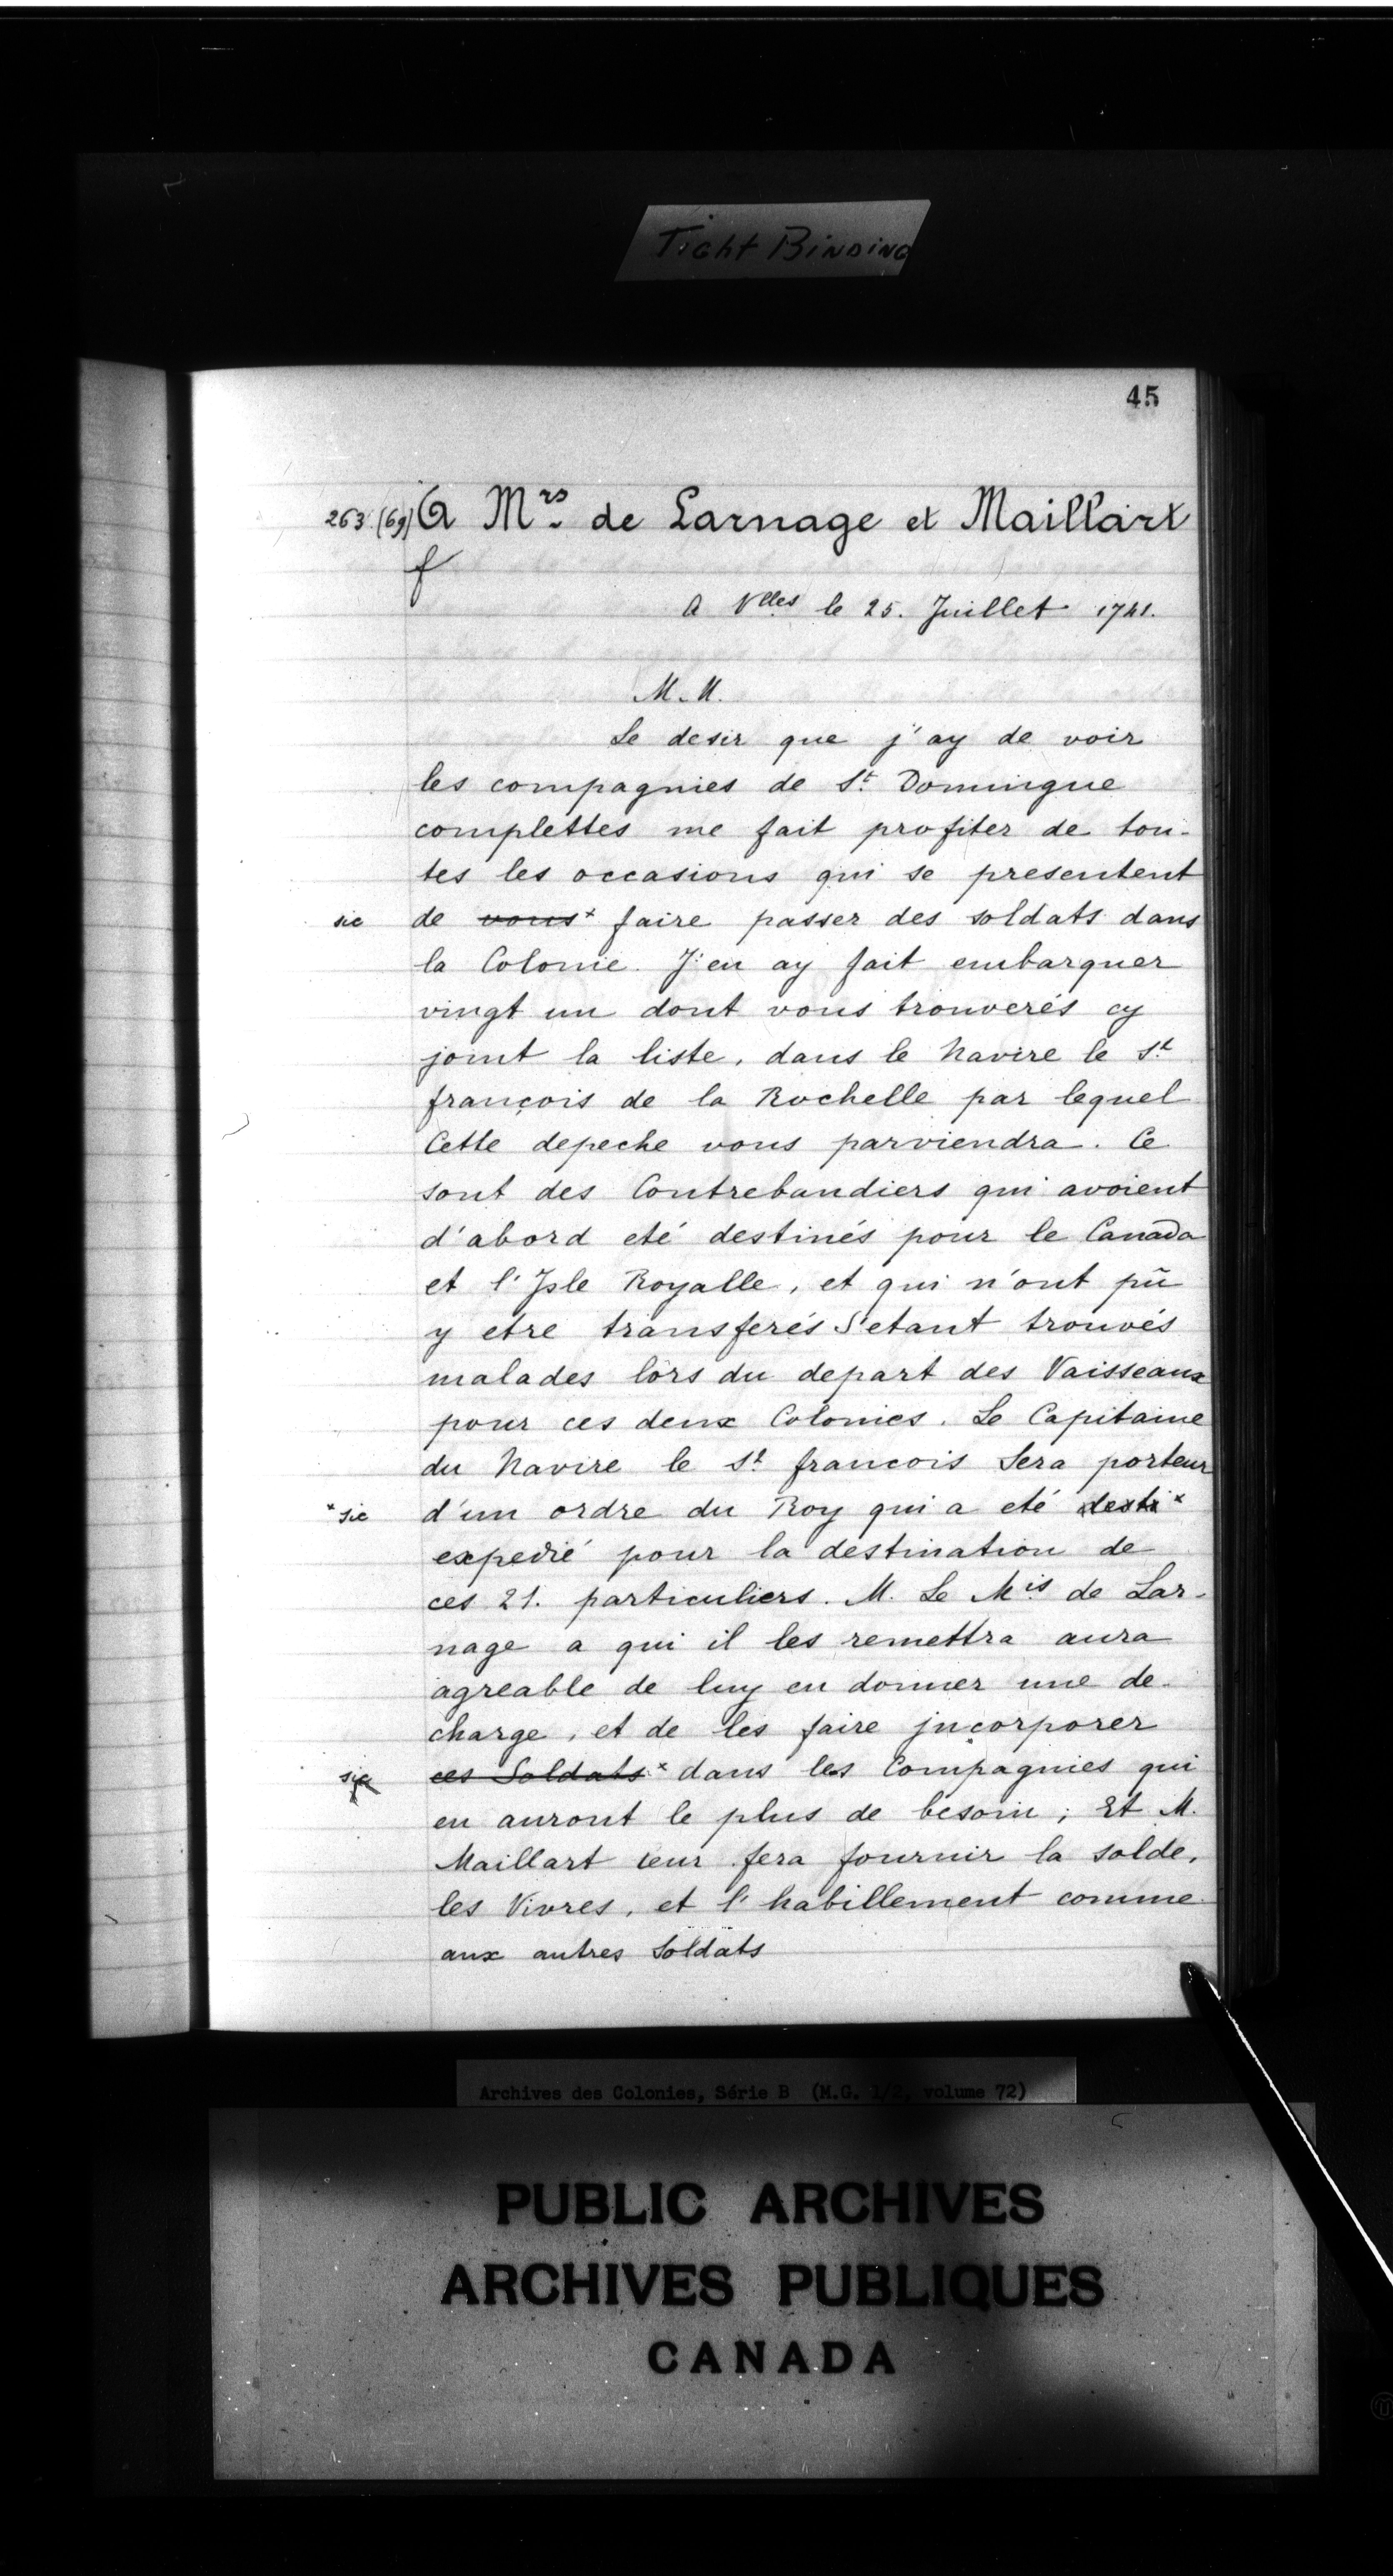 Tight Binding
45
263 (69) A Mrs de Larnage et Maillart
f
A Vlles le 25. Juillet 1741.
M.M.
Le desir que j'ay de voir
les compagnies de St Domingue
complettes me fait profiter de tou-
tes les occasions qui se presentent
sic de vous x faire passer des soldats dans
la Colonie. J'en ay fait embarquer
vingt un dont vous trouverés cy
joint la liste, dans le Navire le St
françois de la Rochelle par lequel
Cette depeche vous parviendra. Ce
sont des Contrebandiers qui avoient
d'abord eté destinés pour le Canada
et l'Jsle Royalle, et qui n'ont pû
y etre transferés S'etant trouvés
malades lors du depart des Vaisseaux
pour ces deux Colonies. Le Capitaine
du Navire le St francois Sera porteur
x sic d'un ordre du Roy qui a eté desti x
expedié pour la destination de
ces 21. particuliers. M. Le Mis de Lar-
nage a qui il les remettra aura
agreable de luy en donner une de-
charge, et de les faire jncorporer
sic ces Soldats x dans les Compagnies qui
en auront le plus de besoin; Et M.
Maillart leur fera fournir la solde,
les Vivres, et l'habillement comme
aux autres Soldats
Archives des Colonies, Série B (M.G. 1/2, volume 72)
PUBLIC ARCHIVES
ARCHIVES PUBLIQUES
CANADA